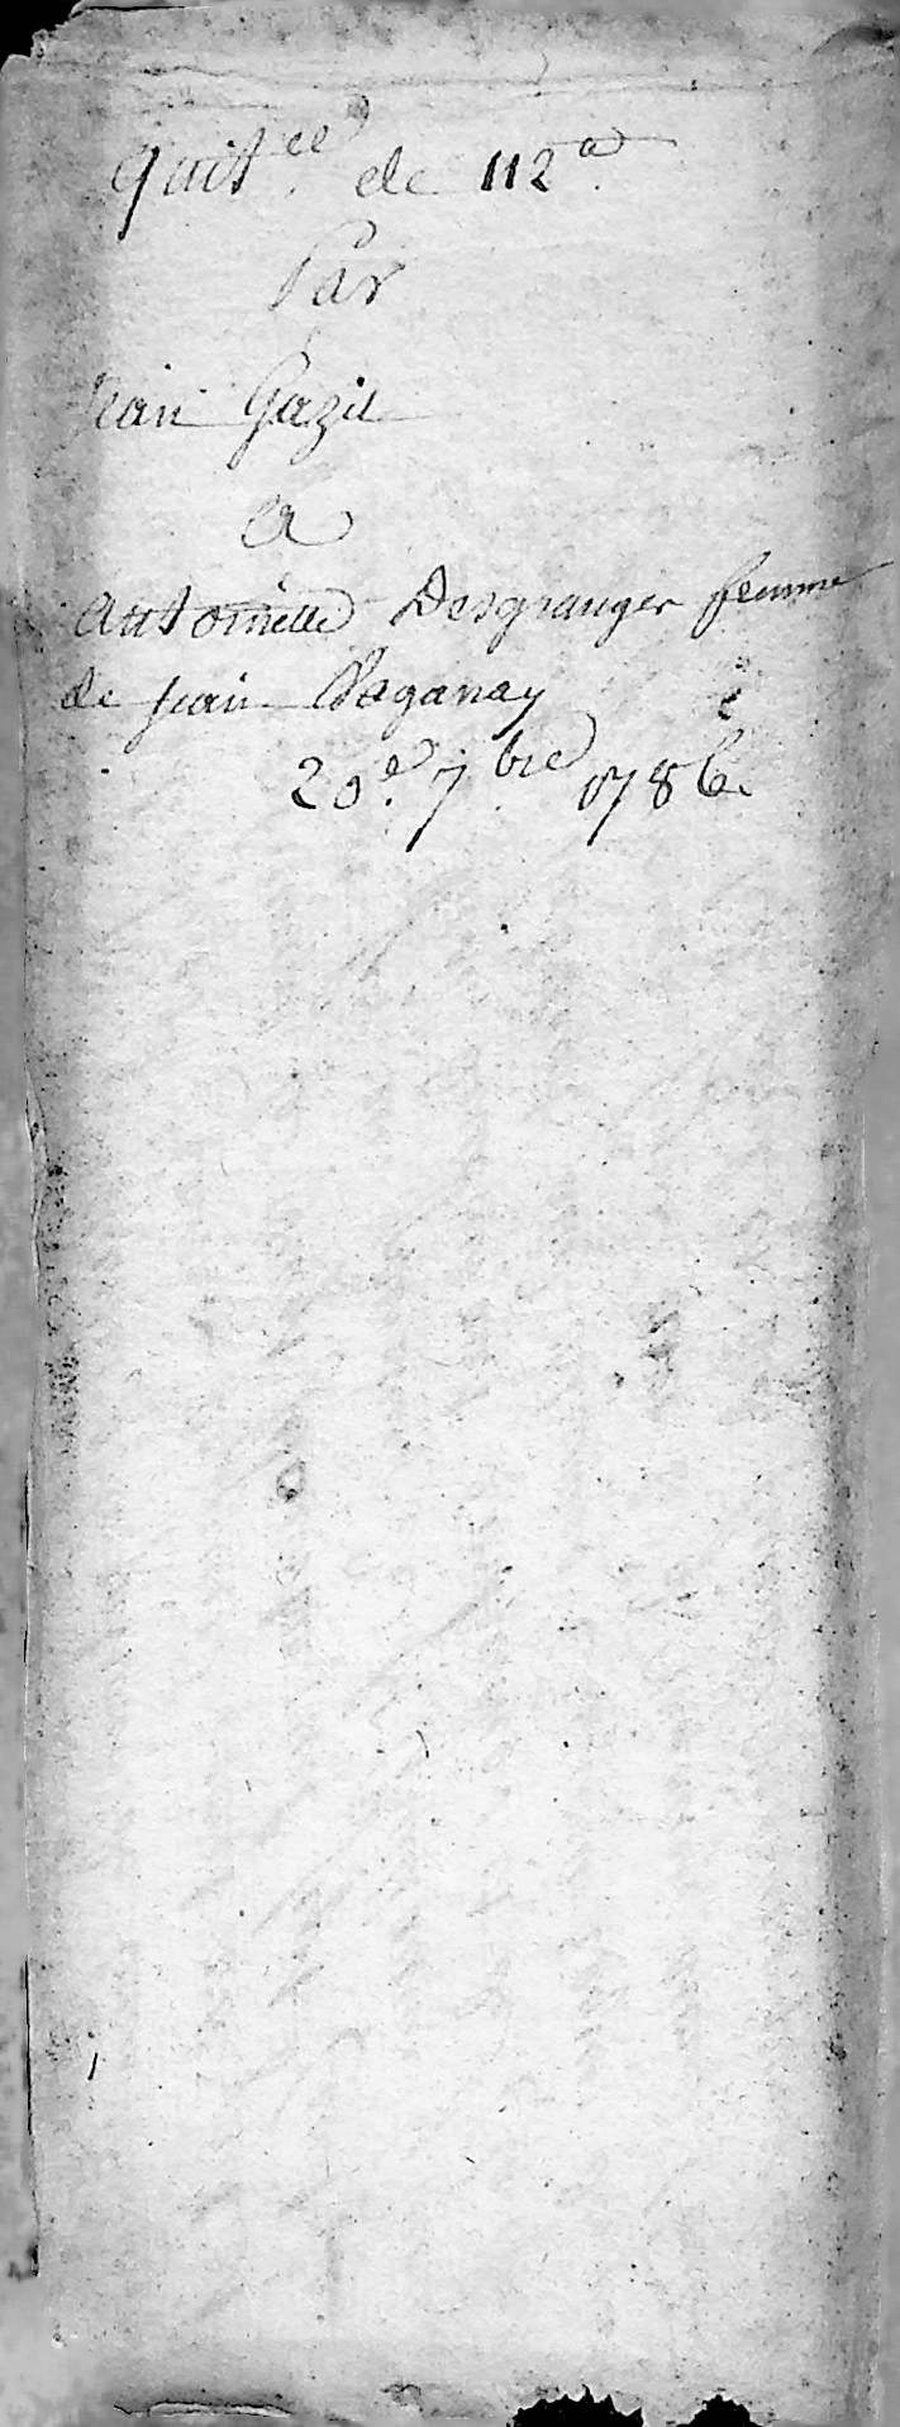 Quitce de 112
Par
Jean Gazit
a
Antoinette Desgranges femme
de Jean Vaganay
20e 7bre 1786